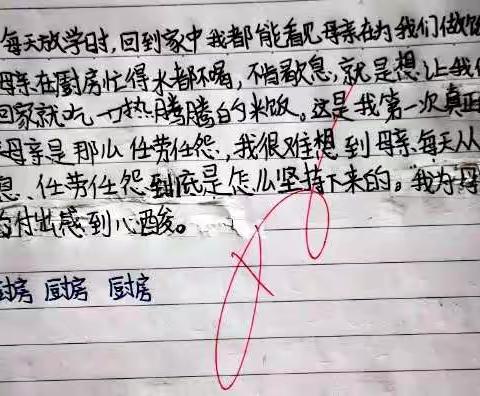 每天放学时,回到家中我都能看见母亲在为我们做饭
母亲在厨房忙得水都不喝,不肯歇息,就是想让我们
回家就吃一口热腾腾的米饭。这是我第一次真正
母亲是那么任劳任怨,我很难想到母亲每天从
息、任劳任怨到底是怎么坚持下来的。我为母
的付出感到心酸。
厨房 厨房 厨房